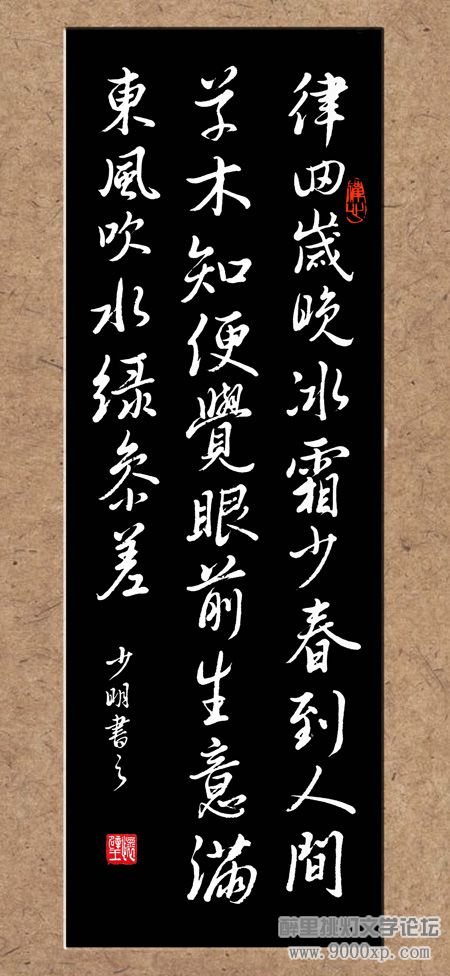 律回歲晚冰霜少春到人間
草木知便覺眼前生意滿
東風吹水綠參差
少明書之
醉里挑灯文学论坛
www.9000xp.com